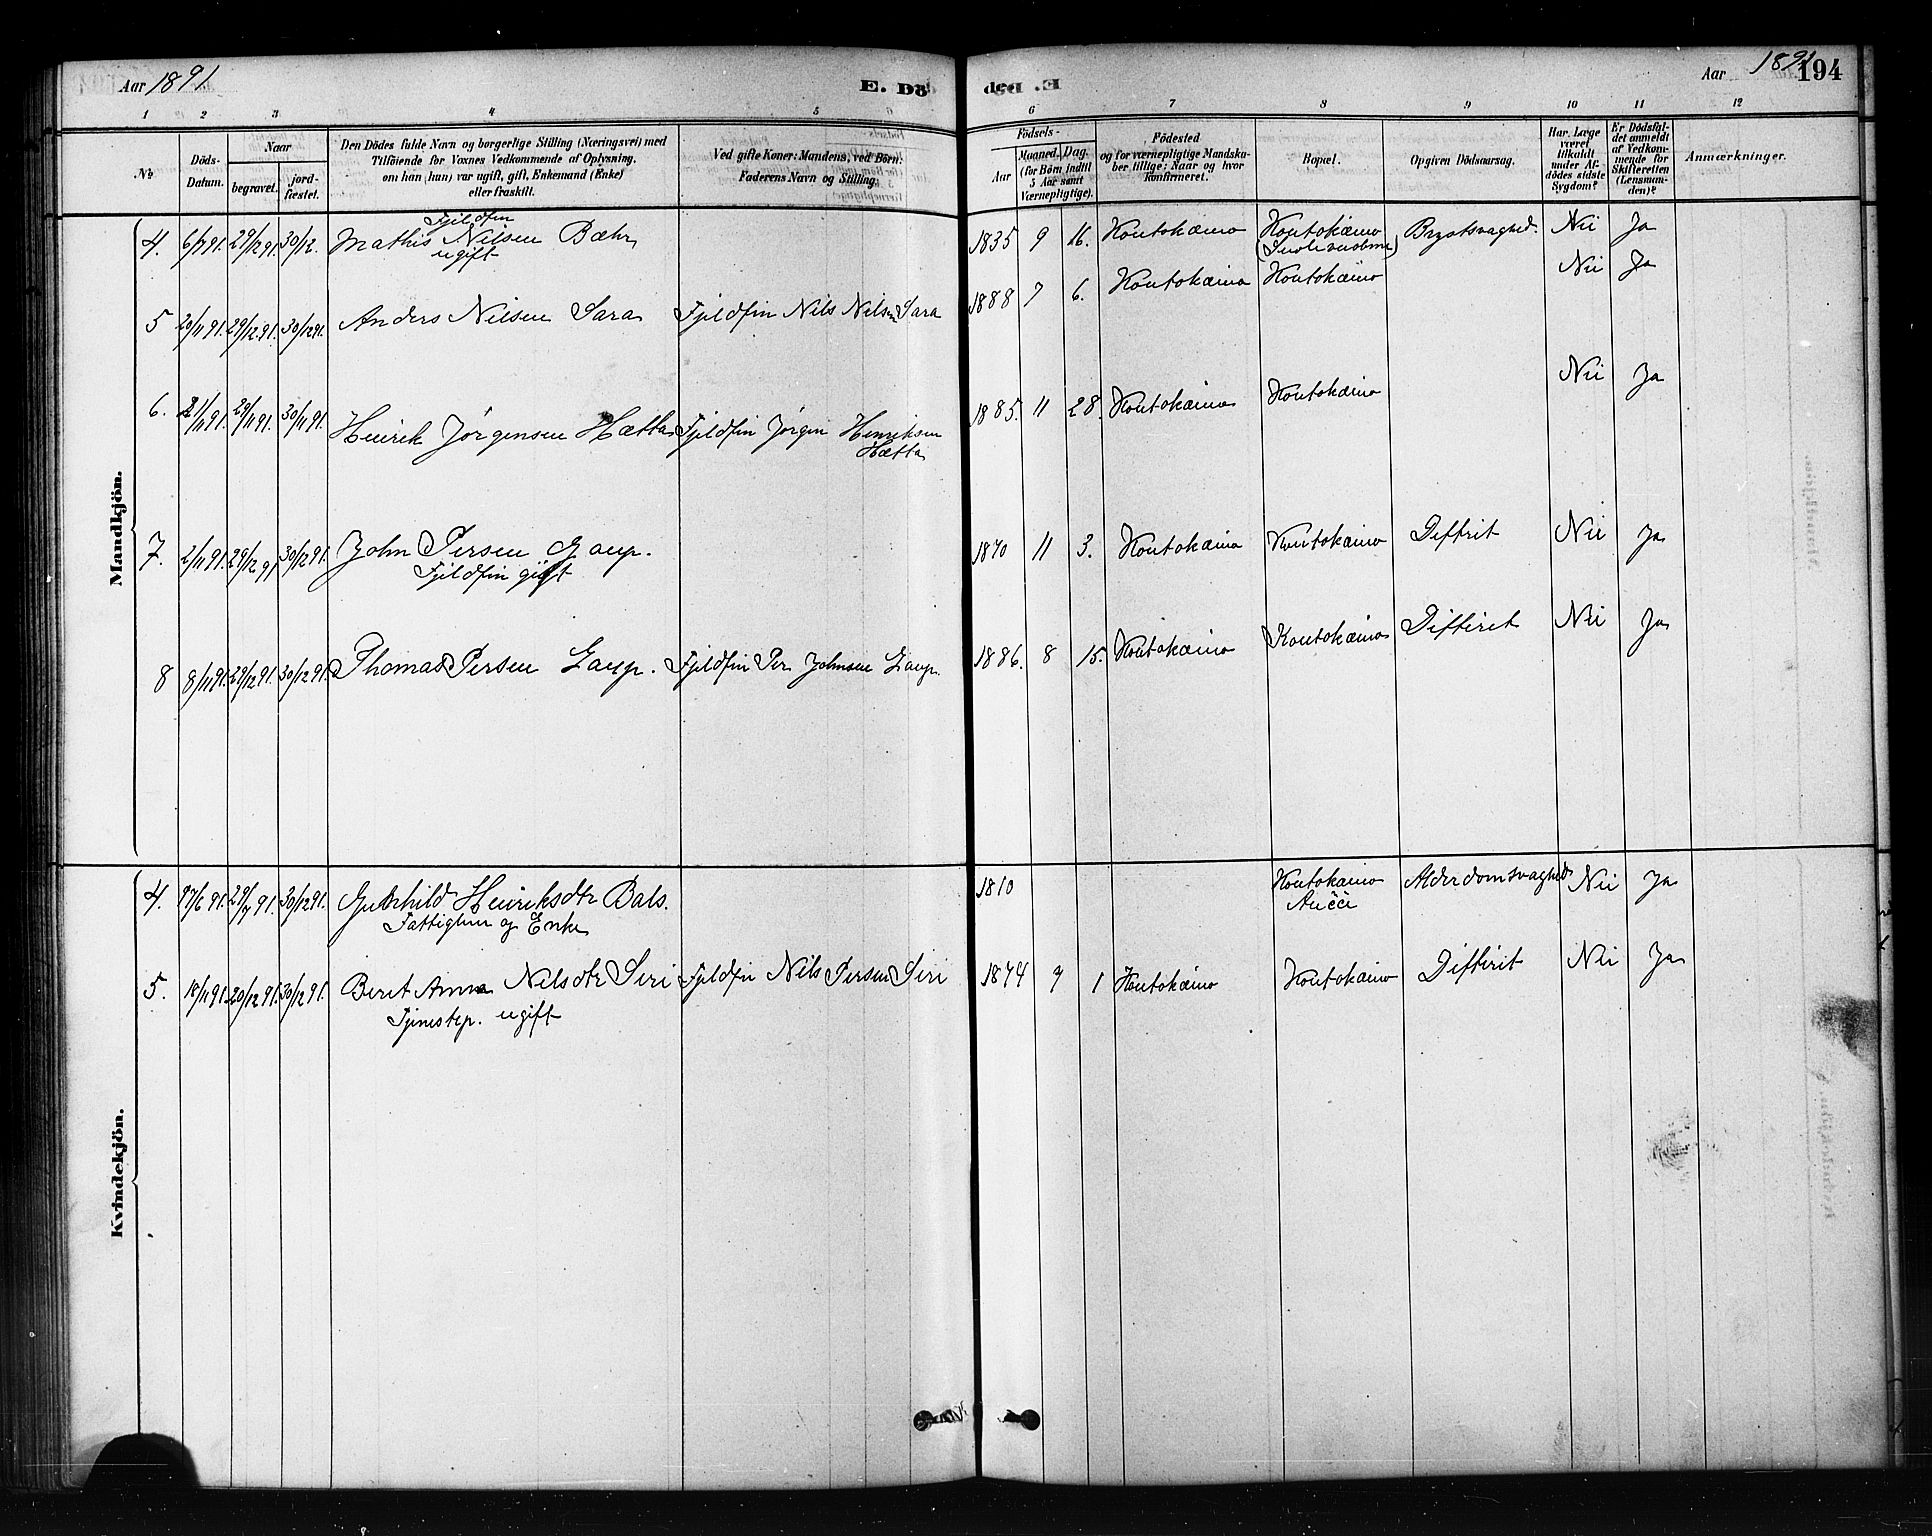 Aar 1891.
E. Dö
E. Död
Aar 1891
194
1 2 3 4 5
6 7 8 9 10 11 12
No
Döds-Datum.
Naar
begravet.
jord-fæstet.
Den Dödes fulde Navn og borgerlige Stilling (Næringsvei) med
Tilföiende for Voxnes Vedkommende af Oplysning,
om han (hun) var ugift, gift, Enkemand (Enke)
eller fraskilt.
Ved gifte Koner: Mandens, ved Börn:
Faderens Navn og Stilling.
Födsels-
Aar
Maaned. Dag.
(for Börn indtil
5 Aar samt
Værnepligtige).
Födested
og for værnepligtige Mandska-
ber tillige: Naar og hvor
konfirmeret.
Bopæl.
Opgiven Dödsaarsag.
Har Læge
været
tilkaldt
under Af-
dödes sidste
Sygdom?
Er Dödsfal-
det anmeldt
af Vedkom-
mende for
Skifteretten
(Lensman-
den)?
Anmærkninger.
Mandkjön.
4. 6/7 91. 29/12 91. 30/12. Fjeldfin
Mathis Nilsen Bæhr 1835 9 16. Koutokæino Koutokæino Brystsvaghed. Nei Ja
ugift
5 20/11 91. 29/12 91. 30/12 91. Anders Nilsen Sara Fjeldfin Nils Nilsen Sara 1888 7 6. Koutokæino Koutokæino Nei Ja
6. 21/11 91. 29/11 91. 30/11 91. Henrik Jørgensen Hætta Fjeldfin Jørgen Henriksen 1885. 11 28. Koutokæino Koutokæino Nei Ja
Hætta
7. 2/11 91. 29/12 91 30/12 91. John Persen Gaup. 1870 11 3. Koutokæino Koutokæino Diftrit Nei Ja
Fjeldfin gift
8 8/11 91. 29/12 91. 30/12 91. Thomas Persen Gaup. Fjeldfin Per Johnsen Gaup. 1886. 8 15. Koutokæino Koutokæino Difterit Nei Ja
Kvindekjön.
4. 17/6 91. 29/7 91. 30/12 91. Gunhild Henriksdtr Bals. 1810 Koutokæino Alderdomsvaghed Nei Ja
Fattiglem og Enke Aučči
5. 18/11 91. 20/12 91. 30/12 91. Berit Anna Nilsdtr Siri Fjeldfin Nils Persen Siri 1874 9 1 Koutokæino Koutokæino Difterit Nei Ja
Tjenestep. ugift